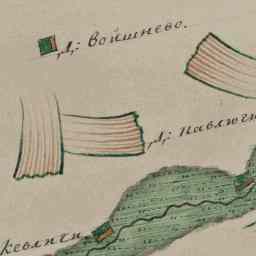 Д: Войшнево.
Д: Павлючи
кевличи